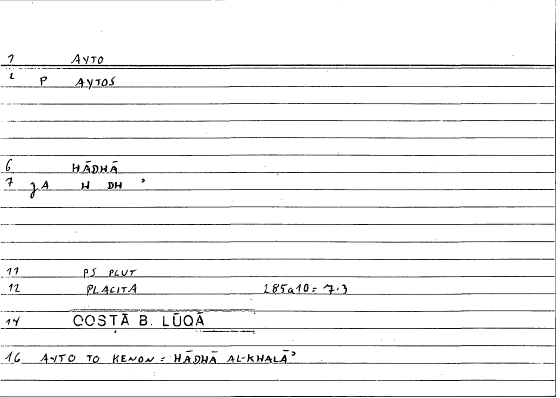 1 AYTO
2 P AYTOS
6 HĀDHĀ
7 JA H DH ʾ
11 PS PLUT
12 PLACITA 285a10 = 7.3
14 QOSTĀ B. LŪQĀ
16 AYTO TO KENON = HĀDHĀ AL-KHALĀʾ